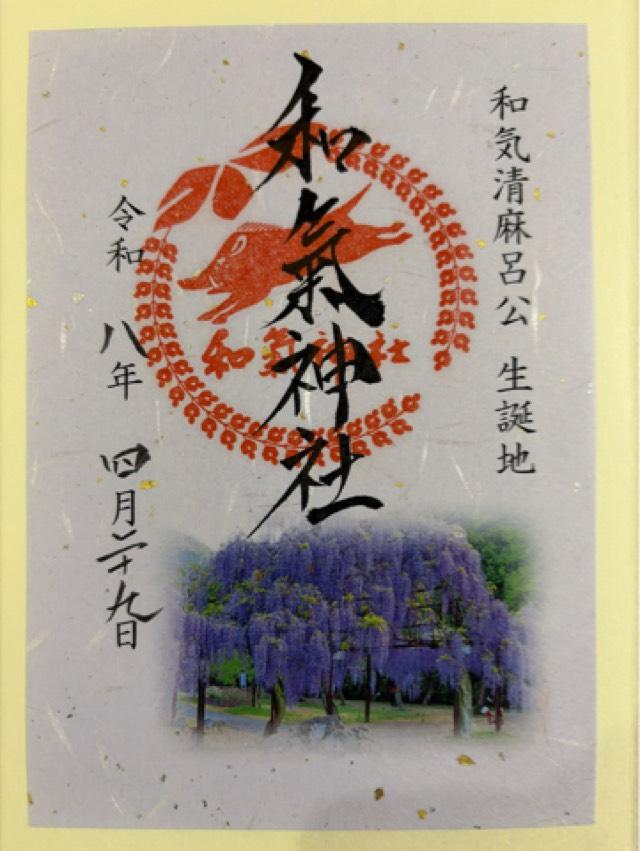 和気清麻呂公 生誕地
和氣神社
和氣神社
令和 八年 四月二十九日